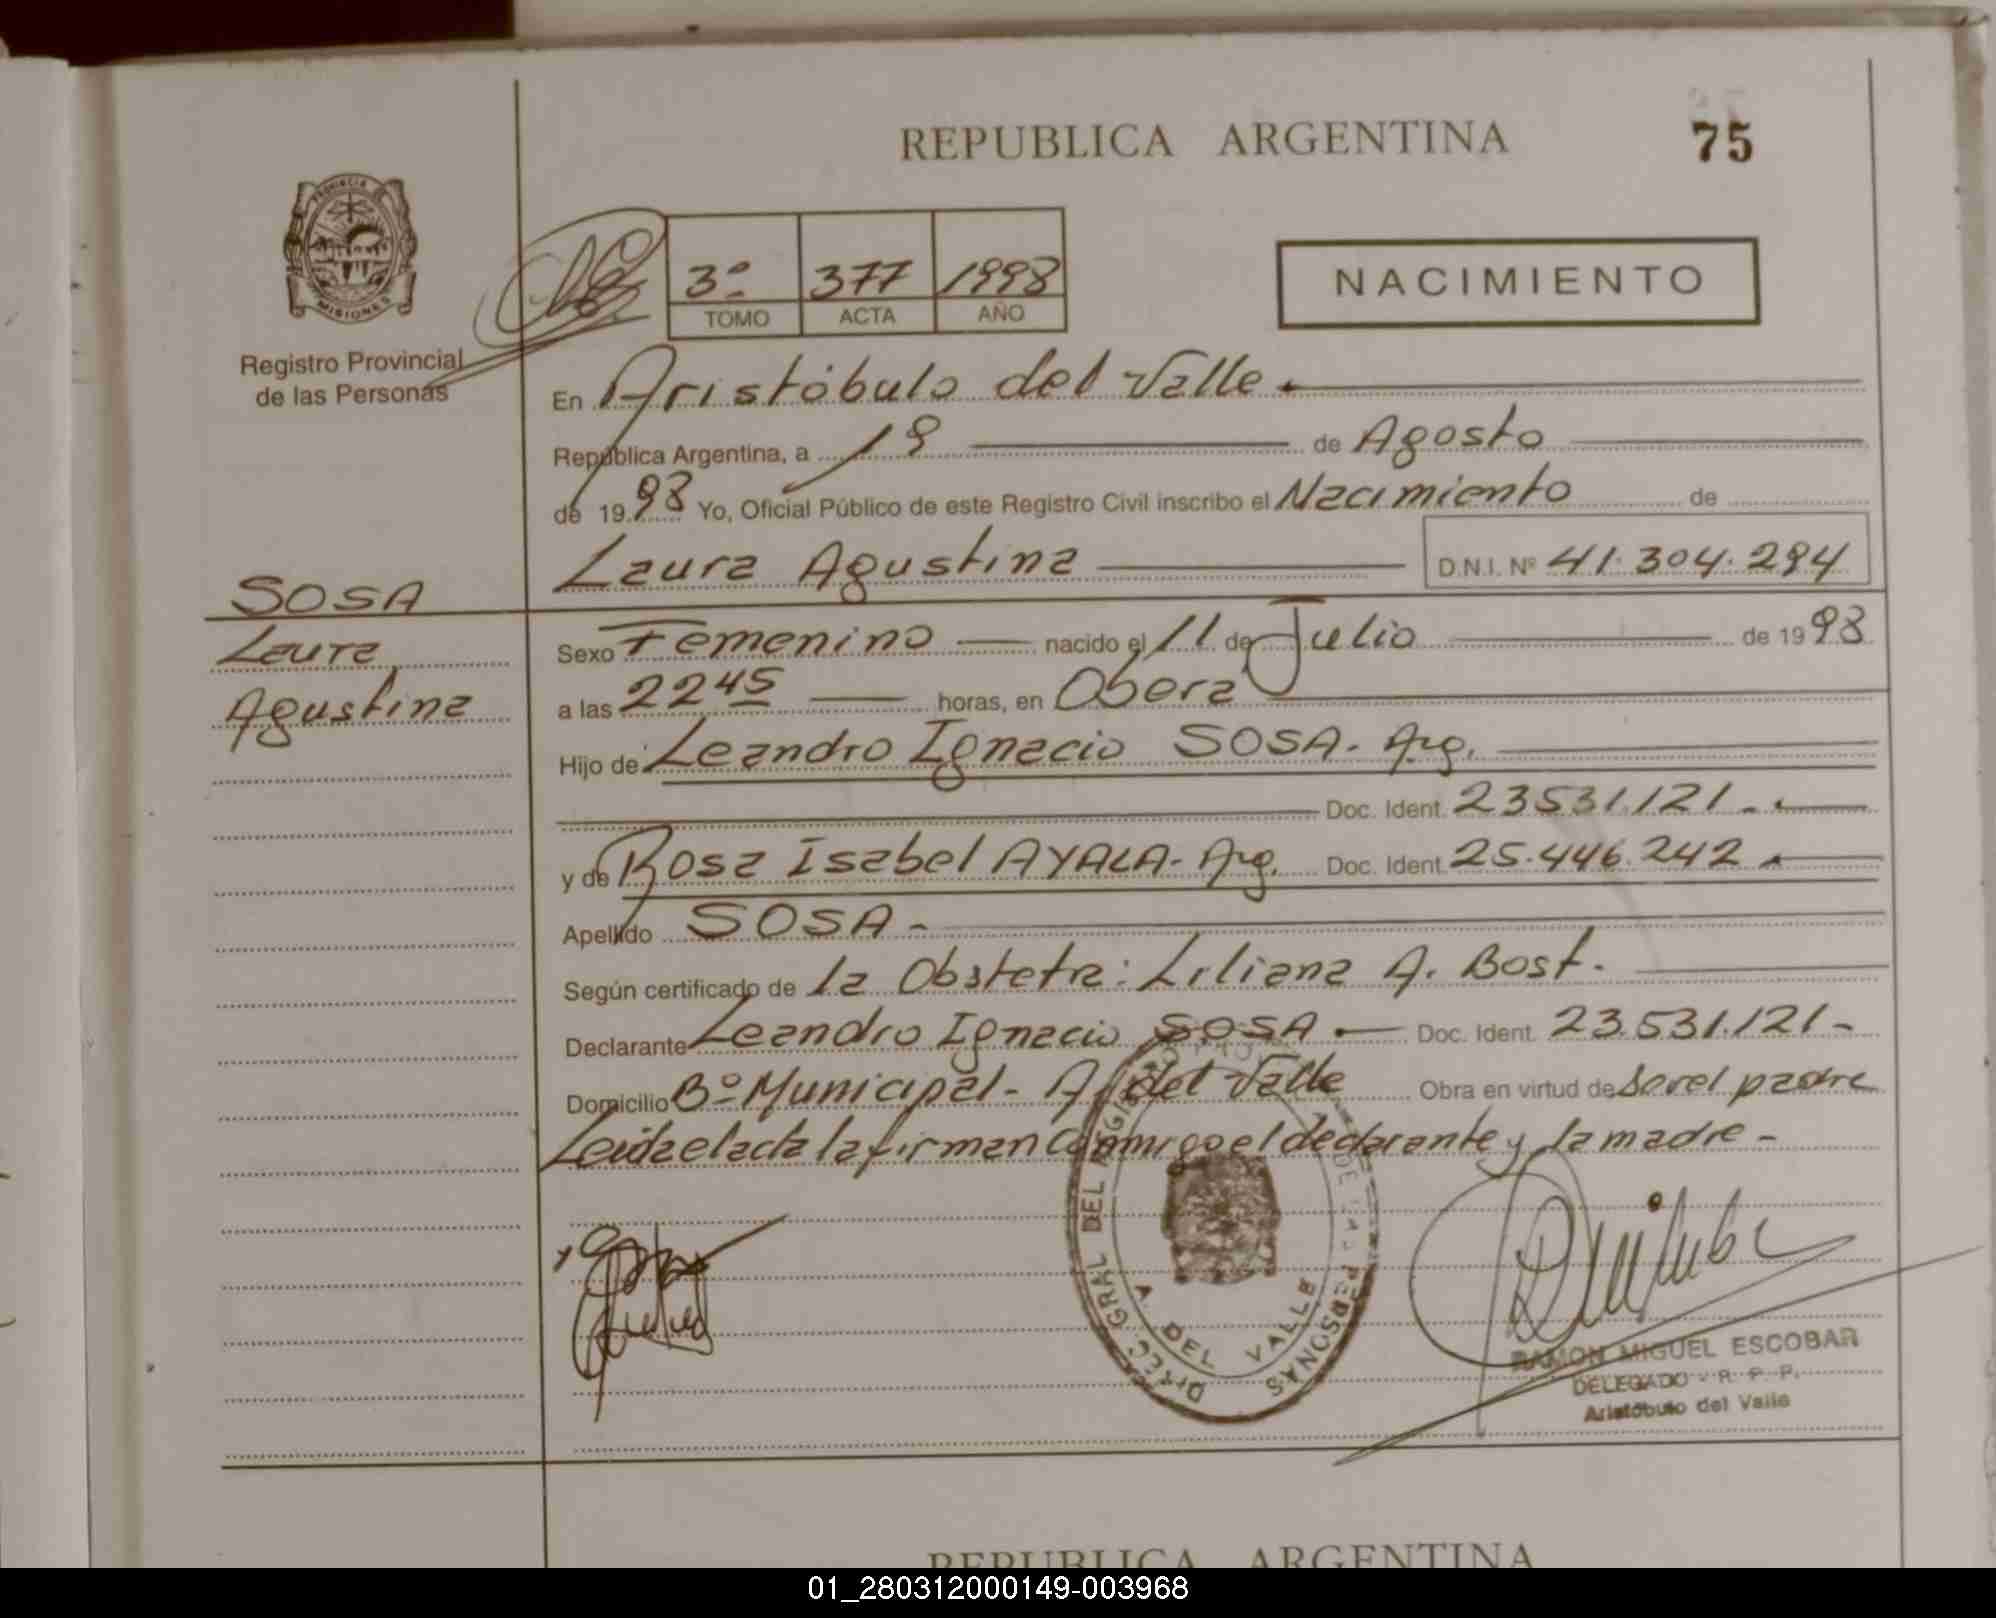 REPUBLICA ARGENTINA
75
PROVINCIA DE
MISIONES
Registro Provincial
de las Personas
3º 377 1998
TOMO ACTA AÑO
NACIMIENTO
En Aristóbulo del Valle.
República Argentina, a 19 de Agosto
de 1998 Yo, Oficial Público de este Registro Civil inscribo el Nacimiento de
Laura Agustina D.N.I. Nº 41.304.294
SOSA
Laura
Agustina
Sexo Femenino nacido el 11 de Julio de 1998
a las 2245 horas, en Oberá
Hijo de Leandro Ignacio SOSA. Arg.
Doc. Ident. 23531.121-.
y de Rosa Isabel AYALA- Arg. Doc. Ident. 25.446.242.
Apellido SOSA-
Según certificado de la Obstetra: Liliana A. Bost.
Declarante Leandro Ignacio SOSA Doc. Ident. 23.531.121-
Domicilio Bº Municipal- A. del Valle Obra en virtud de ser el padre
Leida el acta la firman conmigo el declarante y la madre-
DIREC GRAL DEL REGISTRO DE LAS PERSONAS
A. DEL VALLE
RAMON MIGUEL ESCOBAR
DELEGADO - R. P. P.
Aristóbulo del Valle
REPUBLICA ARGENTINA
01_280312000149-003968